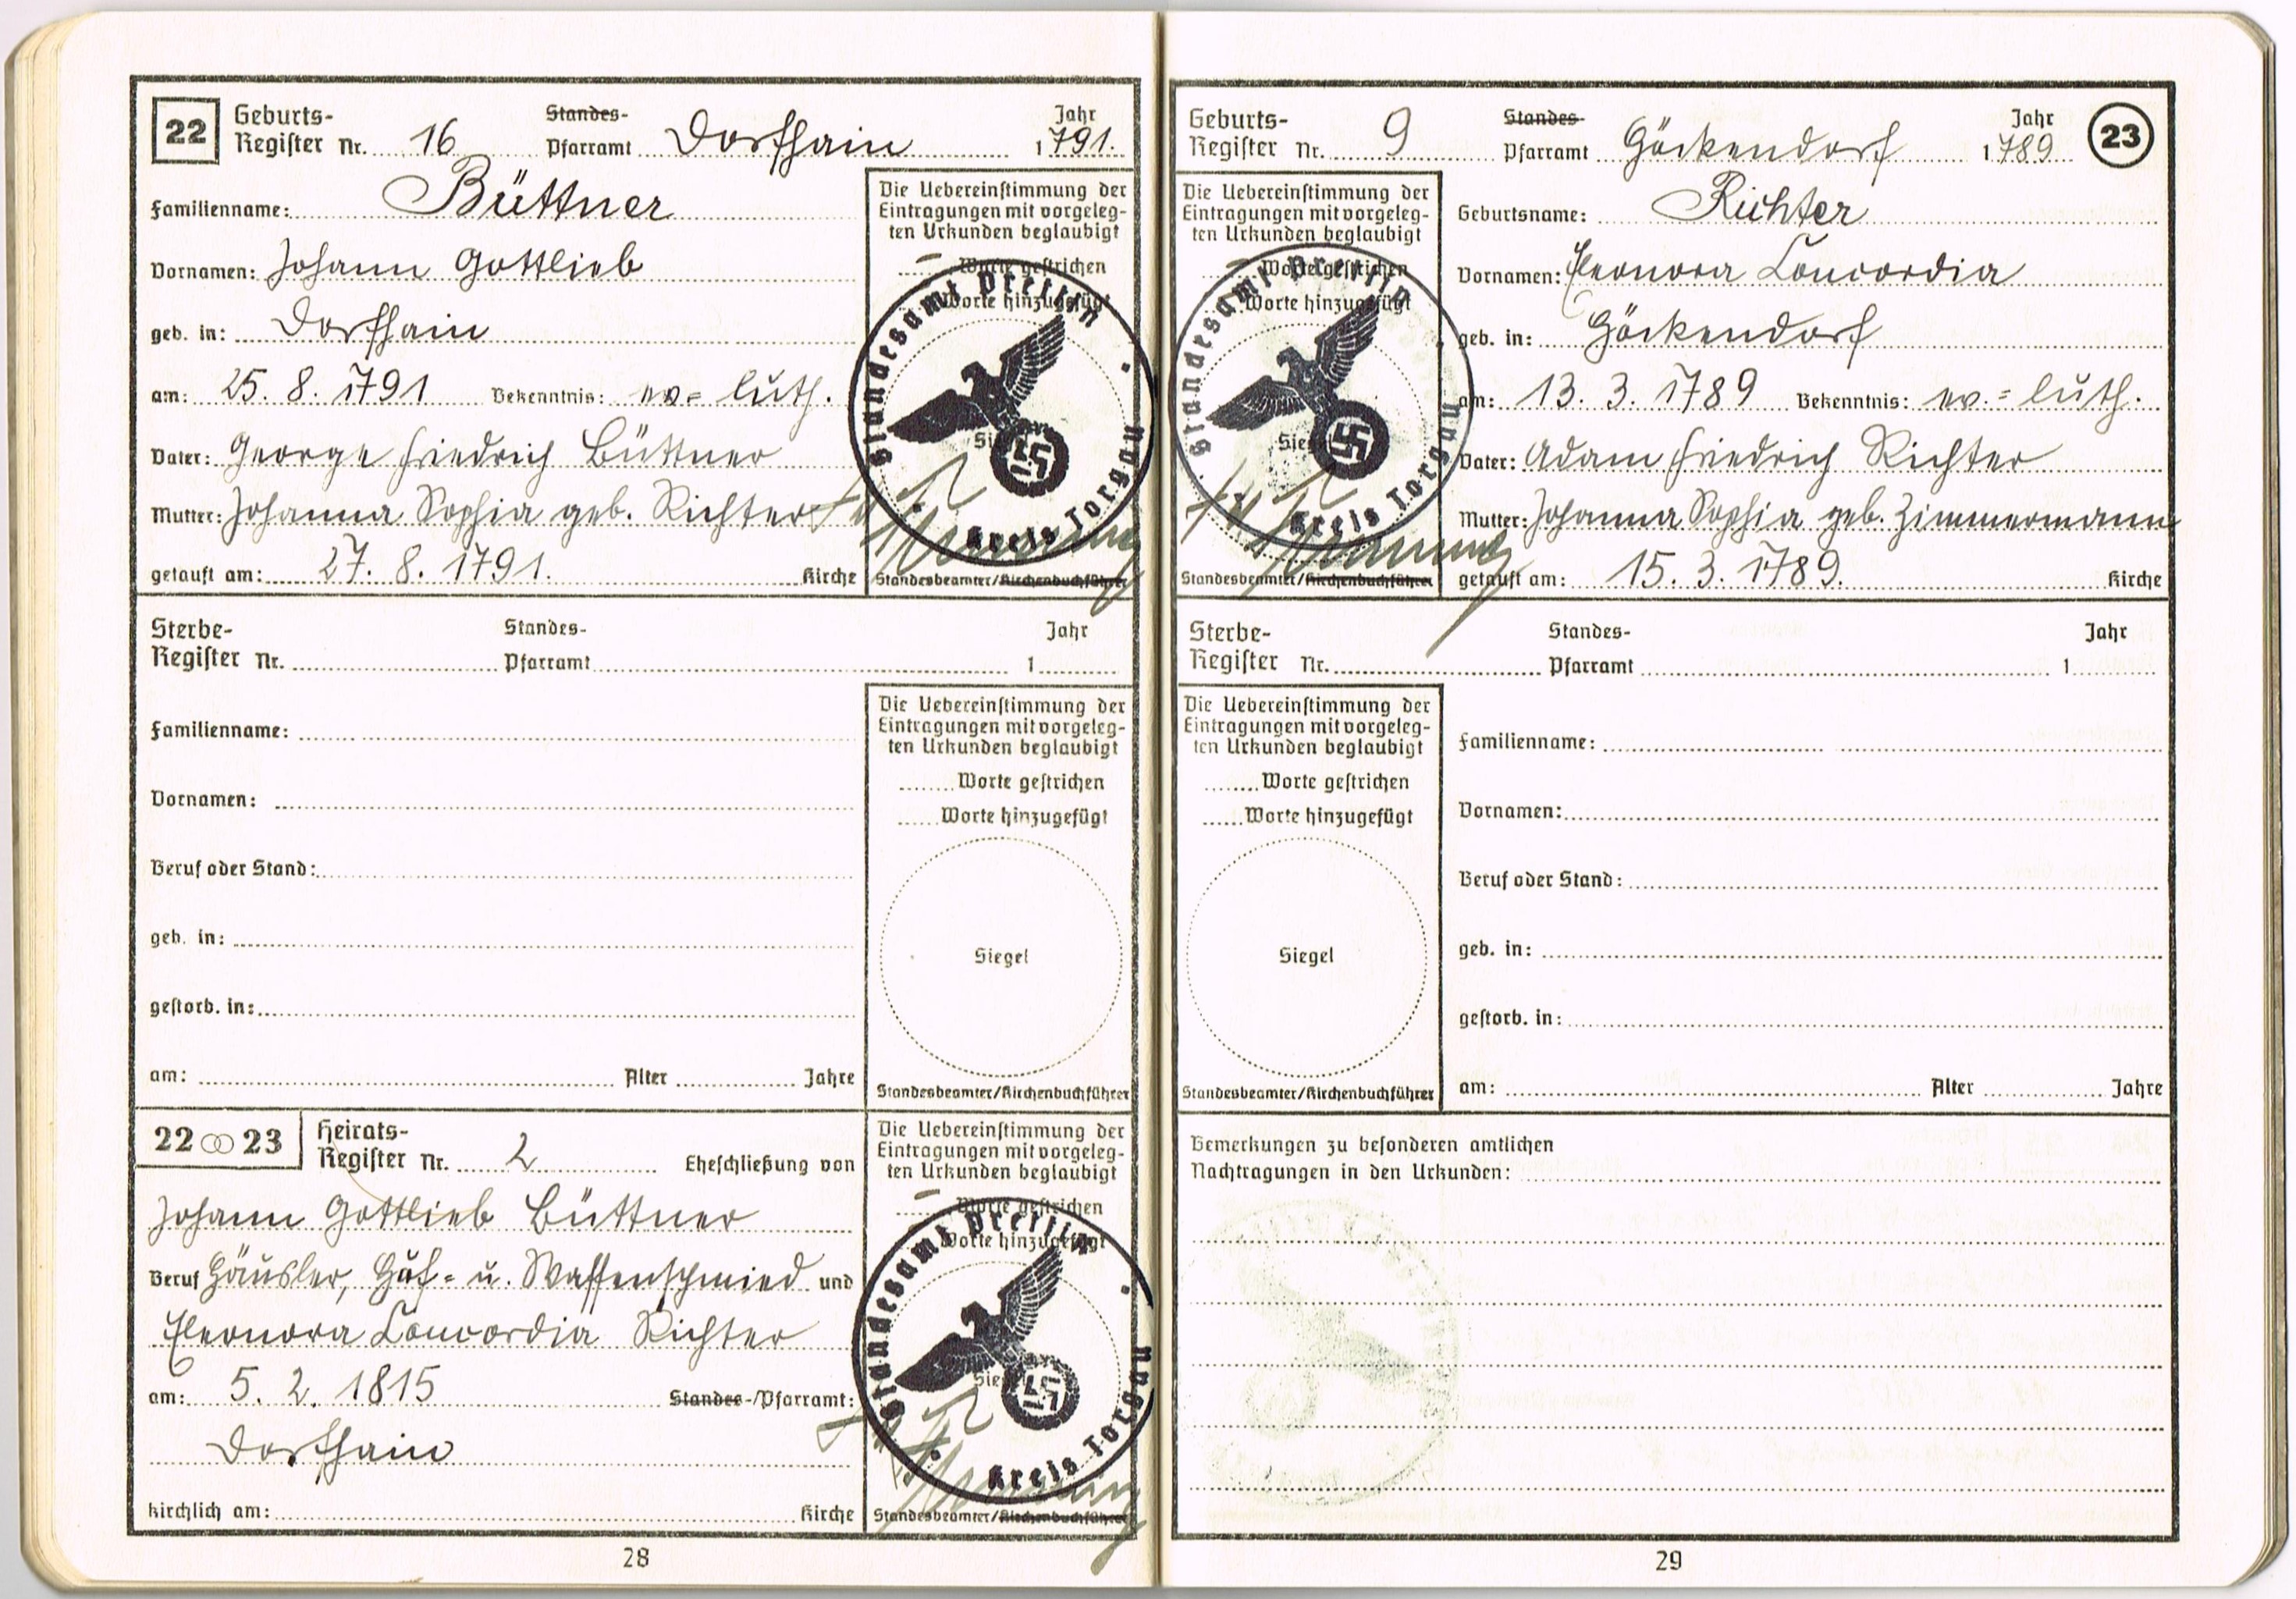 22 Geburts- Standes- Jahr
Regiſter Nr. 16 Pfarramt Dorfhain 1791.
Familienname: Büttner
Vornamen: Johann Gottlieb
geb. in: Dorfhain
am: 25. 8. 1791 Bekenntnis: ev.=luth.
Vater: George Friedrich Büttner
Mutter: Johanna Sophia geb. Richter
getauft am: 27. 8. 1791. Kirche
Die Uebereinſtimmung der
Eintragungen mit vorgeleg-
ten Urkunden beglaubigt
– Worte geſtrichen
Worte hinzugefügt
Siegel
Standesamt Prettin
Kreis Torgau
Standesbeamter/Kirchenbuchführer
Sterbe- Standes- Jahr
Regiſter Nr. Pfarramt 1
Familienname:
Vornamen:
Beruf oder Stand:
geb. in:
geſtorb. in:
am: Alter Jahre
Die Uebereinſtimmung der
Eintragungen mit vorgeleg-
ten Urkunden beglaubigt
Worte geſtrichen
Worte hinzugefügt
Siegel
Standesbeamter/Kirchenbuchführer
22 ⚭ 23 Heirats-
Regiſter Nr. 2 Eheſchließung von
Johann Gottlieb Büttner
Beruf Häusler, Huf- u. Waffenschmied und
Eleonora Concordia Richter
am: 5. 2. 1815 Standes-/Pfarramt:
Dorfhain
kirchlich am: Kirche
Die Uebereinſtimmung der
Eintragungen mit vorgeleg-
ten Urkunden beglaubigt
– Worte geſtrichen
Worte hinzugefügt
Siegel
Standesamt Prettin
Kreis Torgau
Standesbeamter/Kirchenbuchführer
28
Geburts- Standes- Jahr 23
Regiſter Nr. 9 Pfarramt Höckendorf 1789
Die Uebereinſtimmung der
Eintragungen mit vorgeleg-
ten Urkunden beglaubigt
– Worte geſtrichen
Worte hinzugefügt
Siegel
Standesamt Prettin
Kreis Torgau
Standesbeamter/Kirchenbuchführer
Geburtsname: Richter
Vornamen: Eleonora Concordia
geb. in: Höckendorf
am: 13. 3. 1789 Bekenntnis: ev.=luth.
Vater: Adam Friedrich Richter
Mutter: Johanna Sophia geb. Zimmermann
getauft am: 15. 3. 1789. Kirche
Sterbe- Standes- Jahr
Regiſter Nr. Pfarramt 1
Die Uebereinſtimmung der
Eintragungen mit vorgeleg-
ten Urkunden beglaubigt
Worte geſtrichen
Worte hinzugefügt
Siegel
Standesbeamter/Kirchenbuchführer
Familienname:
Vornamen:
Beruf oder Stand:
geb. in:
geſtorb. in:
am: Alter Jahre
Bemerkungen zu beſonderen amtlichen
Nachtragungen in den Urkunden:
29